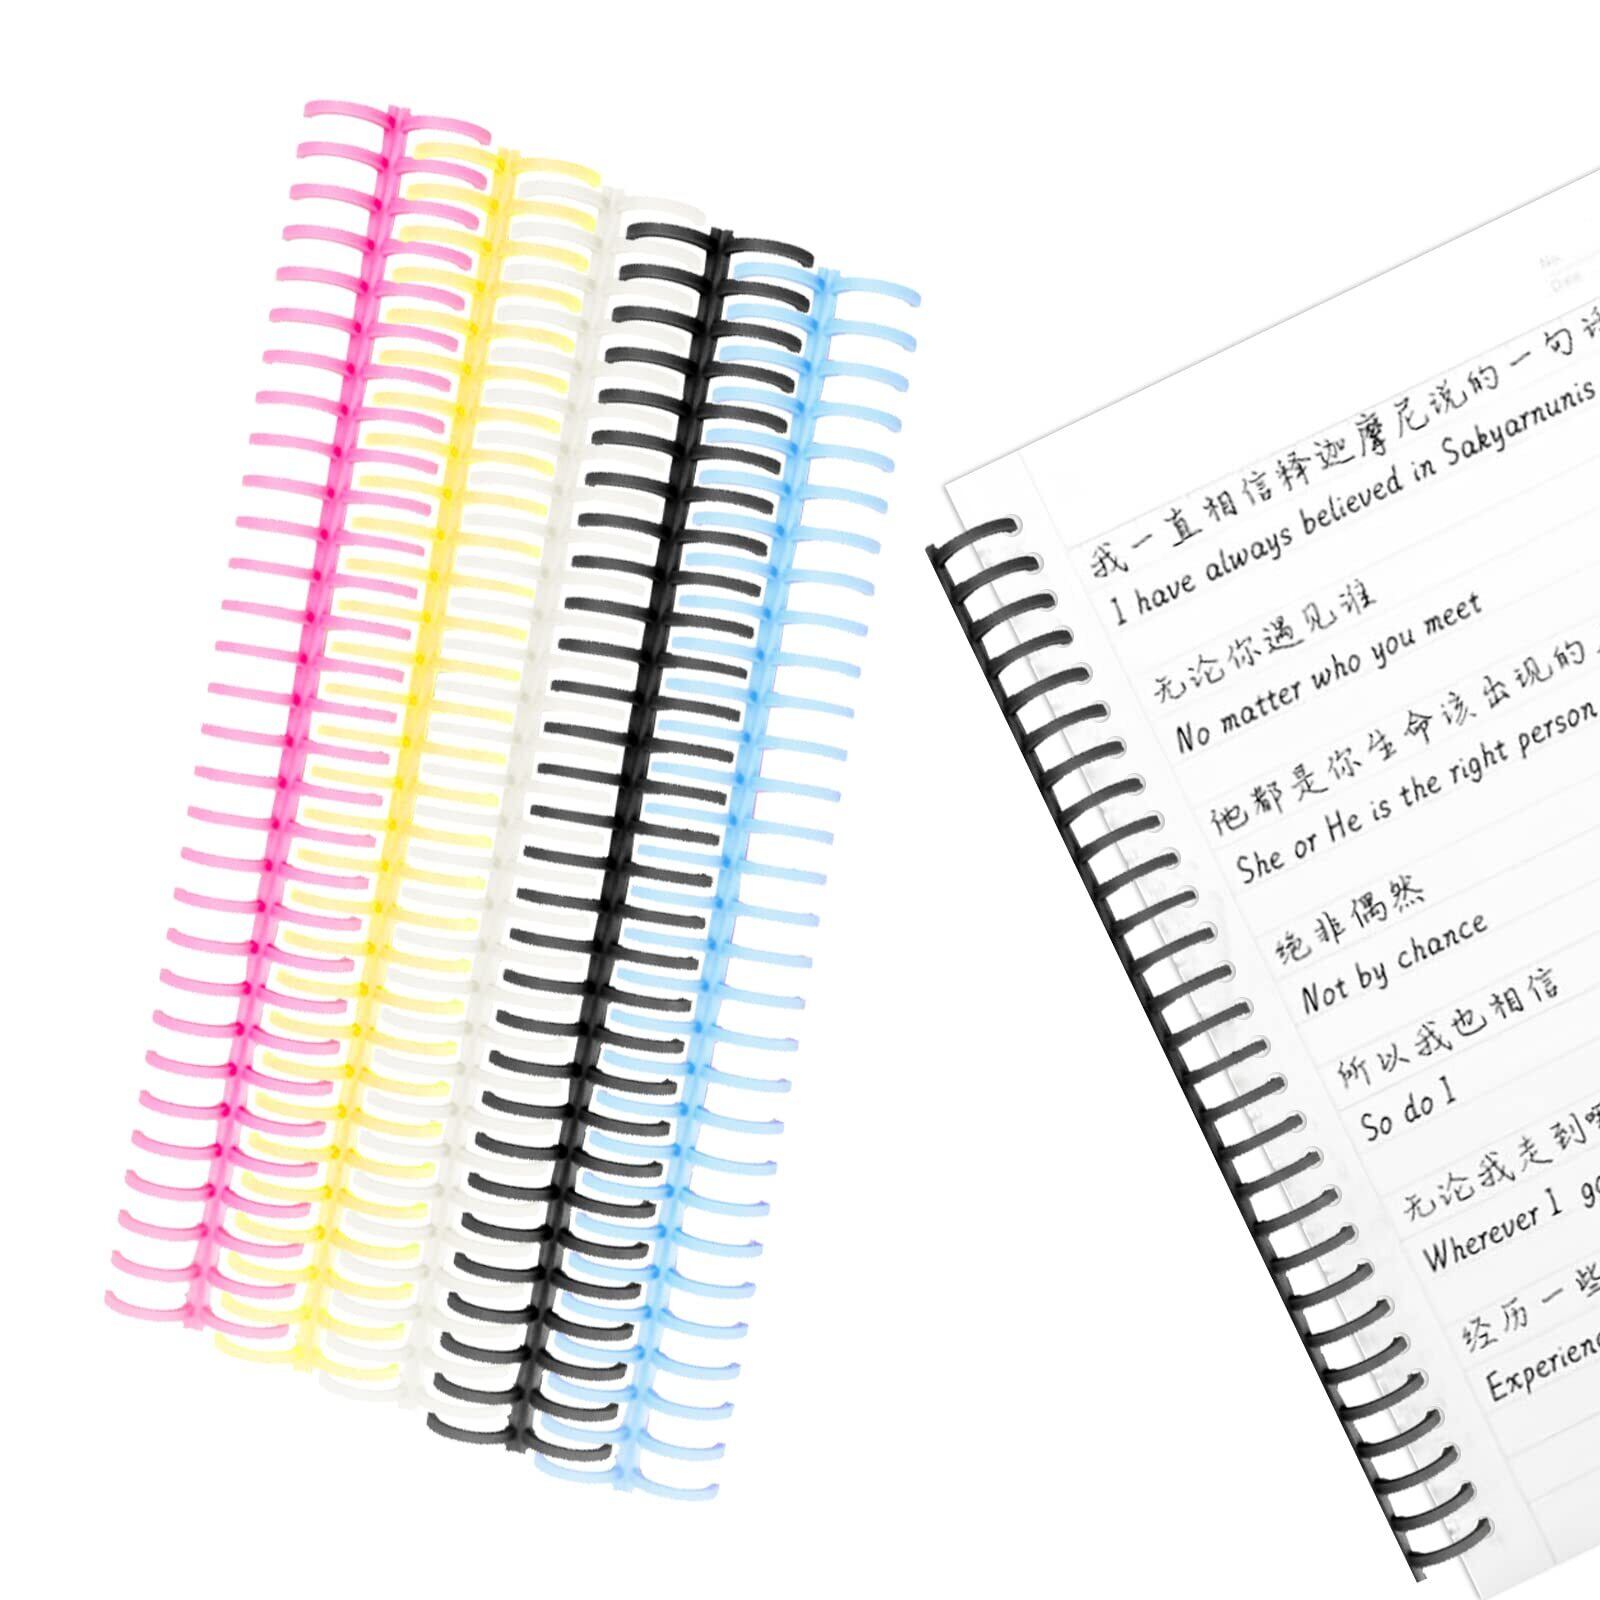 No.
Date
我一直相信释迦摩尼说的一句话
I have always believed in Sakyarnunis
无论你遇见谁
No matter who you meet
他都是你生命该出现的
She or He is the right person
绝非偶然
Not by chance
所以我也相信
So do I
无论我走到哪
Wherever I go
经历一些
Experienc